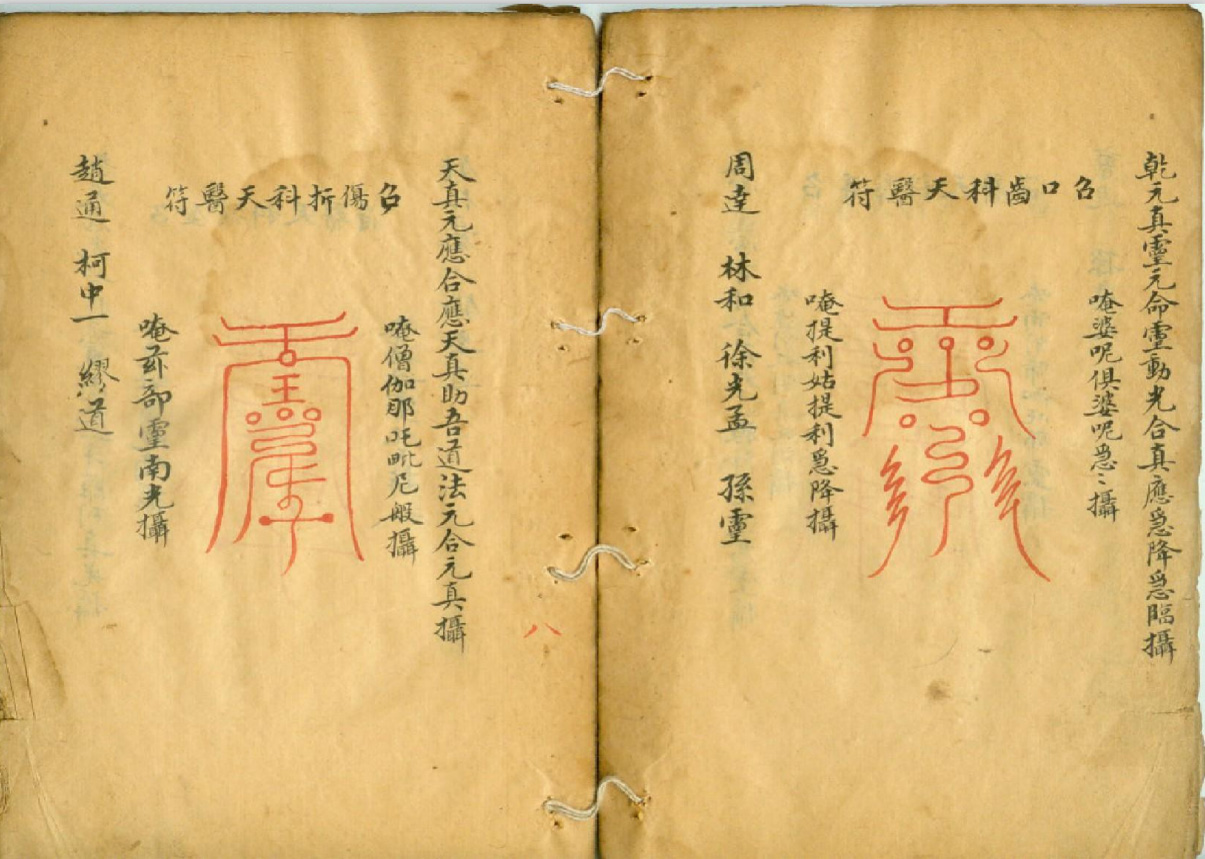 乾元真靈元命靈動光合真應急降急臨攝
召口齒科天醫符
唵婆呢俱婆呢急〻攝
唵提利姑提利急降攝
周達 林和 徐光孟 孫靈
天真元應合應天真助吾道法元合元真攝
召傷折科天醫符
唵僧伽耶吒毗尼般攝
部靈南光攝
趙通 柯中一 繆道
八